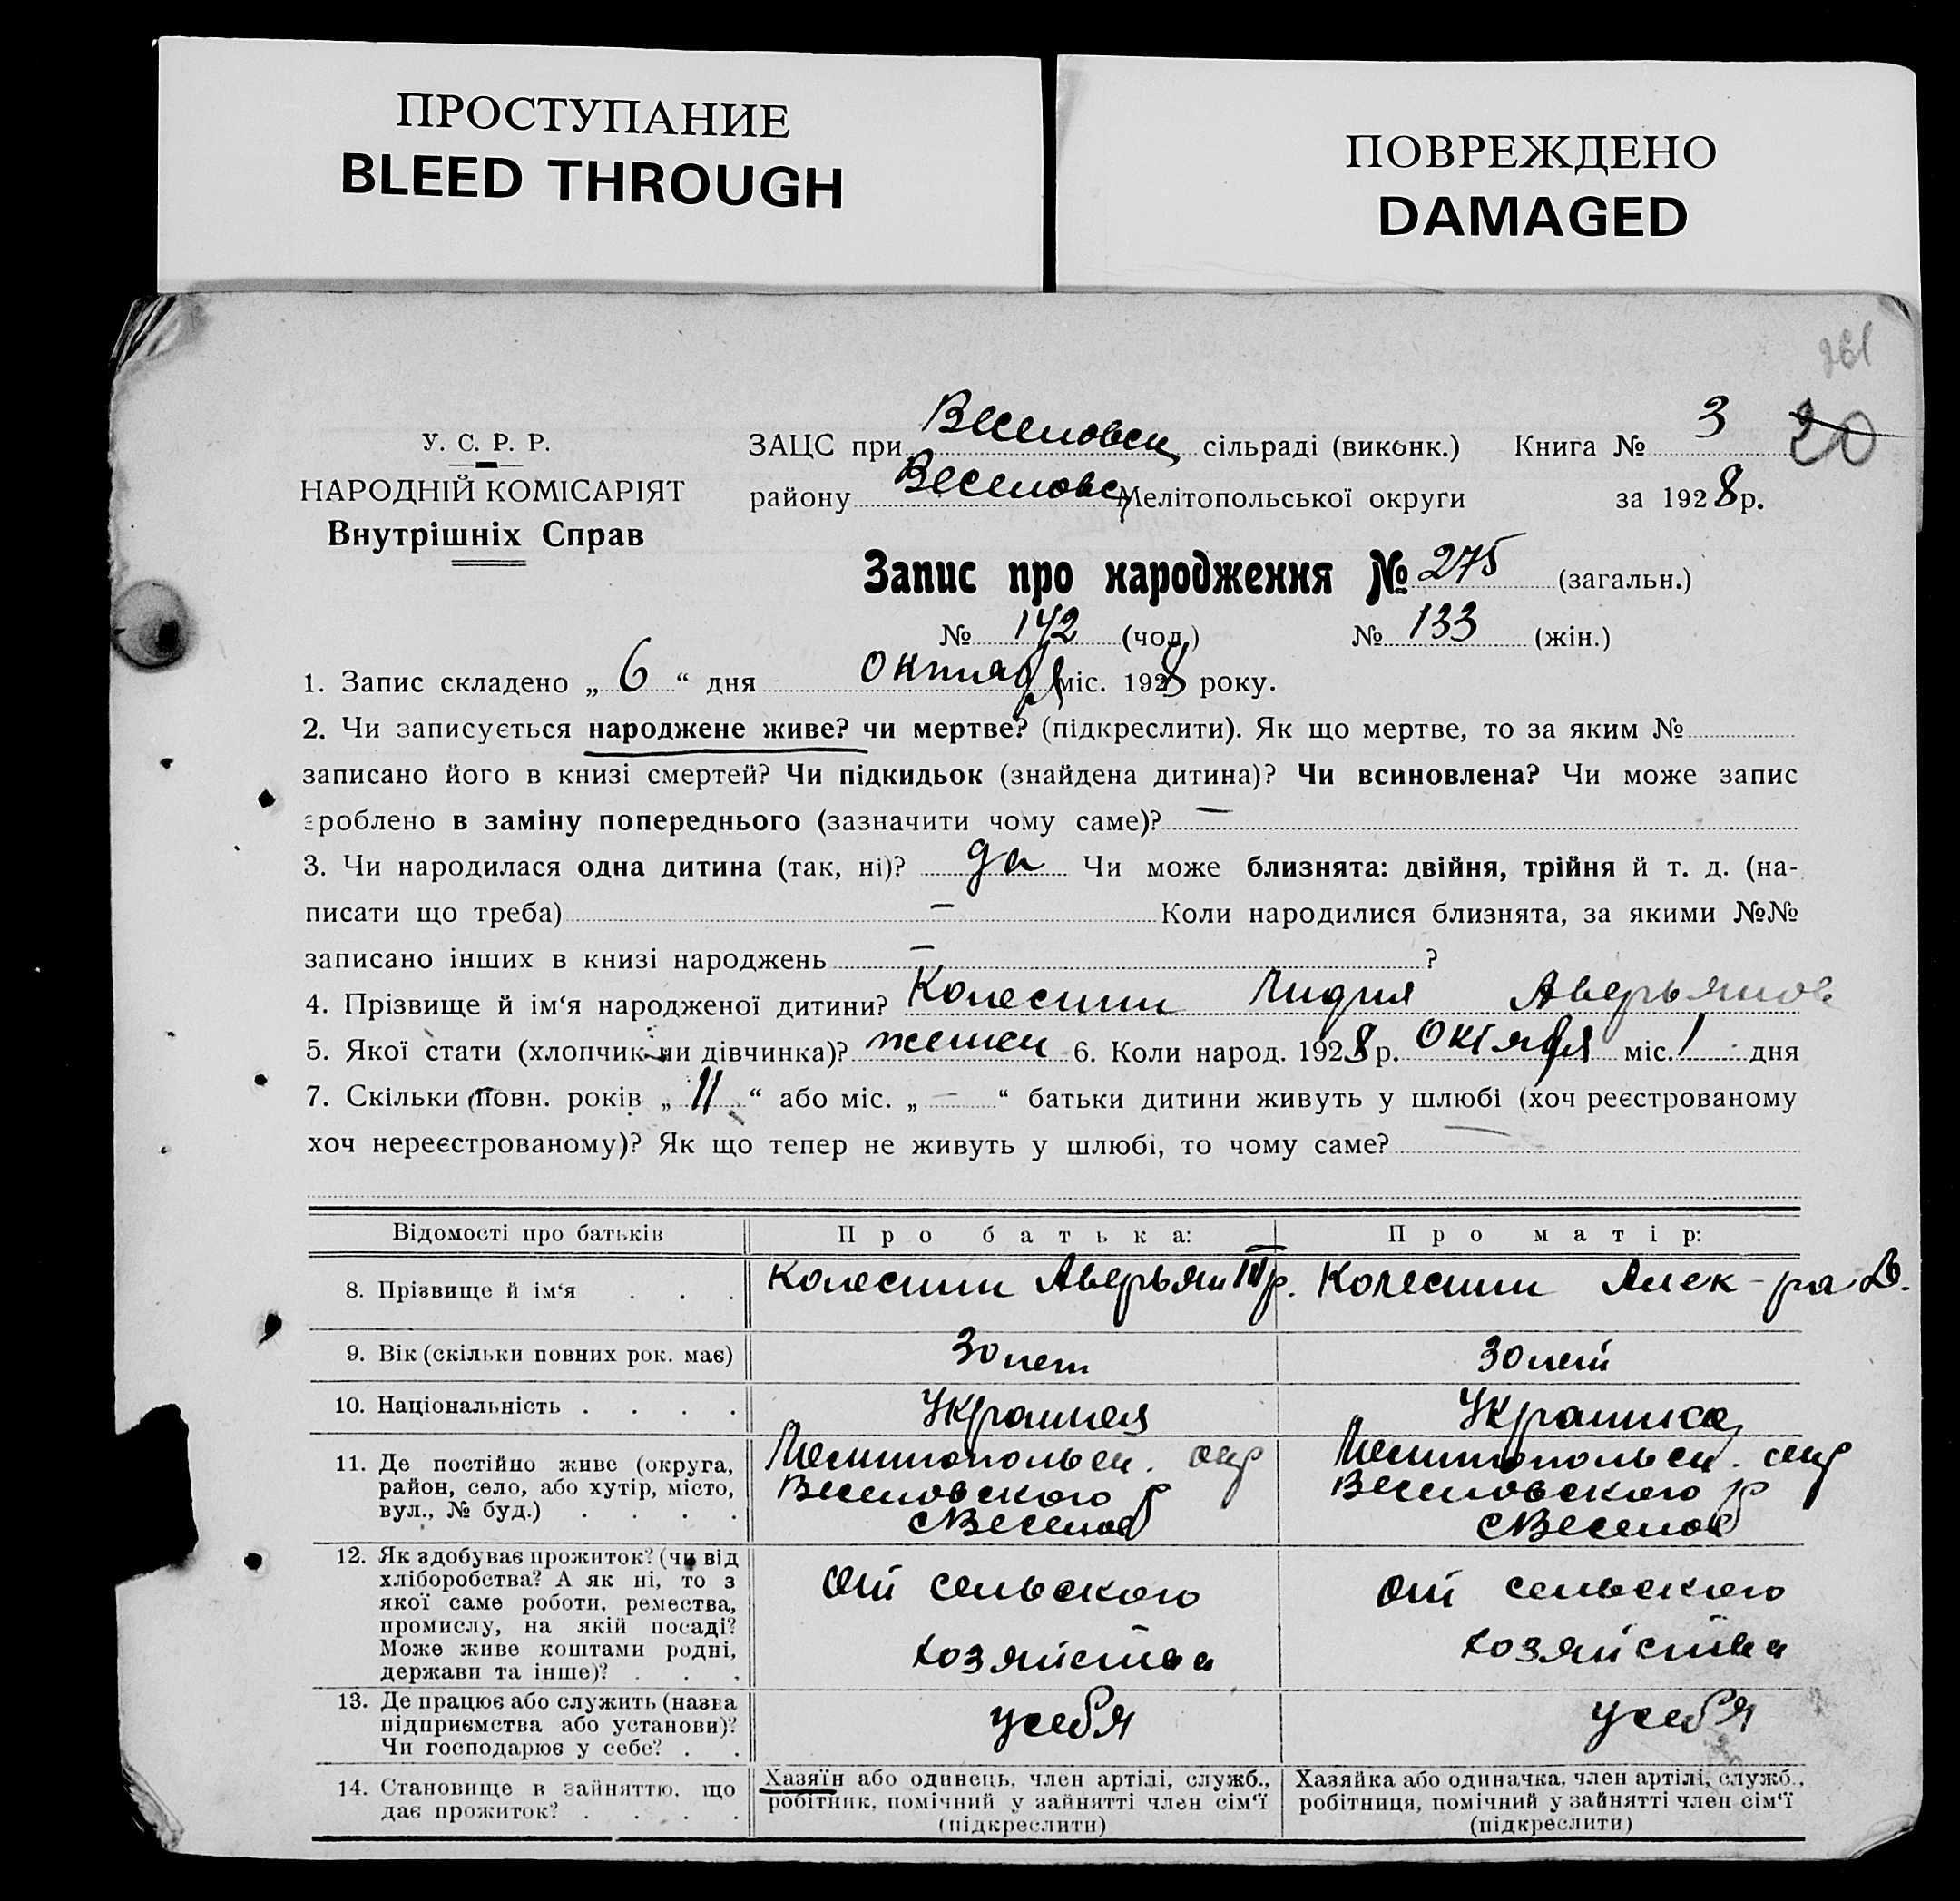 ПРОСТУПАНИЕ
BLEED THROUGH
ПОВРЕЖДЕНО
DAMAGED
261
У. С. Р. Р.
НАРОДНІЙ КОМІСАРІЯТ
Внутрішніх Справ
ЗАЦС при Веселовск сільраді (виконк.) Книга № 3 20
району Веселовс Мелітопольської округи за 1928 р.
Запис про народження № 275 (загальн.)
№ 142 (чол.) № 133 (жін.)
1. Запис складено „ 6 “ дня Октября міс. 1928 року.
2. Чи записується народжене живе? чи мертве? (підкреслити). Як що мертве, то за яким №
записано його в книзі смертей? Чи підкидьок (знайдена дитина)? Чи всиновлена? Чи може запис
зроблено в заміну попереднього (зазначити чому саме)? —
3. Чи народилася одна дитина (так, ні)? да Чи може близнята: двійня, трійня й т. д. (на-
писати що треба) — Коли народилися близнята, за якими №№
записано інших в книзі народжень — ?
4. Прізвище й ім‘я народженої дитини? Колесник Лидия Аверьянов
5. Якої стати (хлопчик чи дівчинка)? женск 6. Коли народ. 1928 р. Октября міс. 1 дня
7. Скільки повн. років „ 11 “ або міс. „ — “ батьки дитини живуть у шлюбі (хоч реєстрованому
хоч нереєстрованому)? Як що тепер не живуть у шлюбі, то чому саме? —
Відомості про батьків Про батька: Про матір:
8. Прізвище й ім‘я . . . Колесник Аверьян Колесник Алек-ра
9. Вік (скільки повних рок. має) 30 лет 30 лет
10. Національність . . . .
11. Де постійно живе (округа, Мелитопольск. окр Мелитопольск. окр
район, село, або хутір, місто, Веселовского р Веселовского р
вул., № буд.) . . . . с Веселое с Веселое
12. Як здобуває прожиток? (чи від
хліборобства? А як ні, то з От сельского От сельского
якої саме роботи, ремества,
промислу, на якій посаді?
Може живе коштами родні, хозяйства хозяйства
держави та інше)? . . .
13. Де працює або служить (назва
підприємства або установи)? у себя у себя
Чи господарює у себе? . .
14. Становище в зайняттю, що Хазяїн або одинець, член артілі, служб., Хазяйка або одиначка, член артілі, служб.,
дає прожиток? . . . . робітник, помічний у зайнятті член сім‘ї робітниця, помічний у зайнятті член сім‘ї
(підкреслити) (підкреслити)